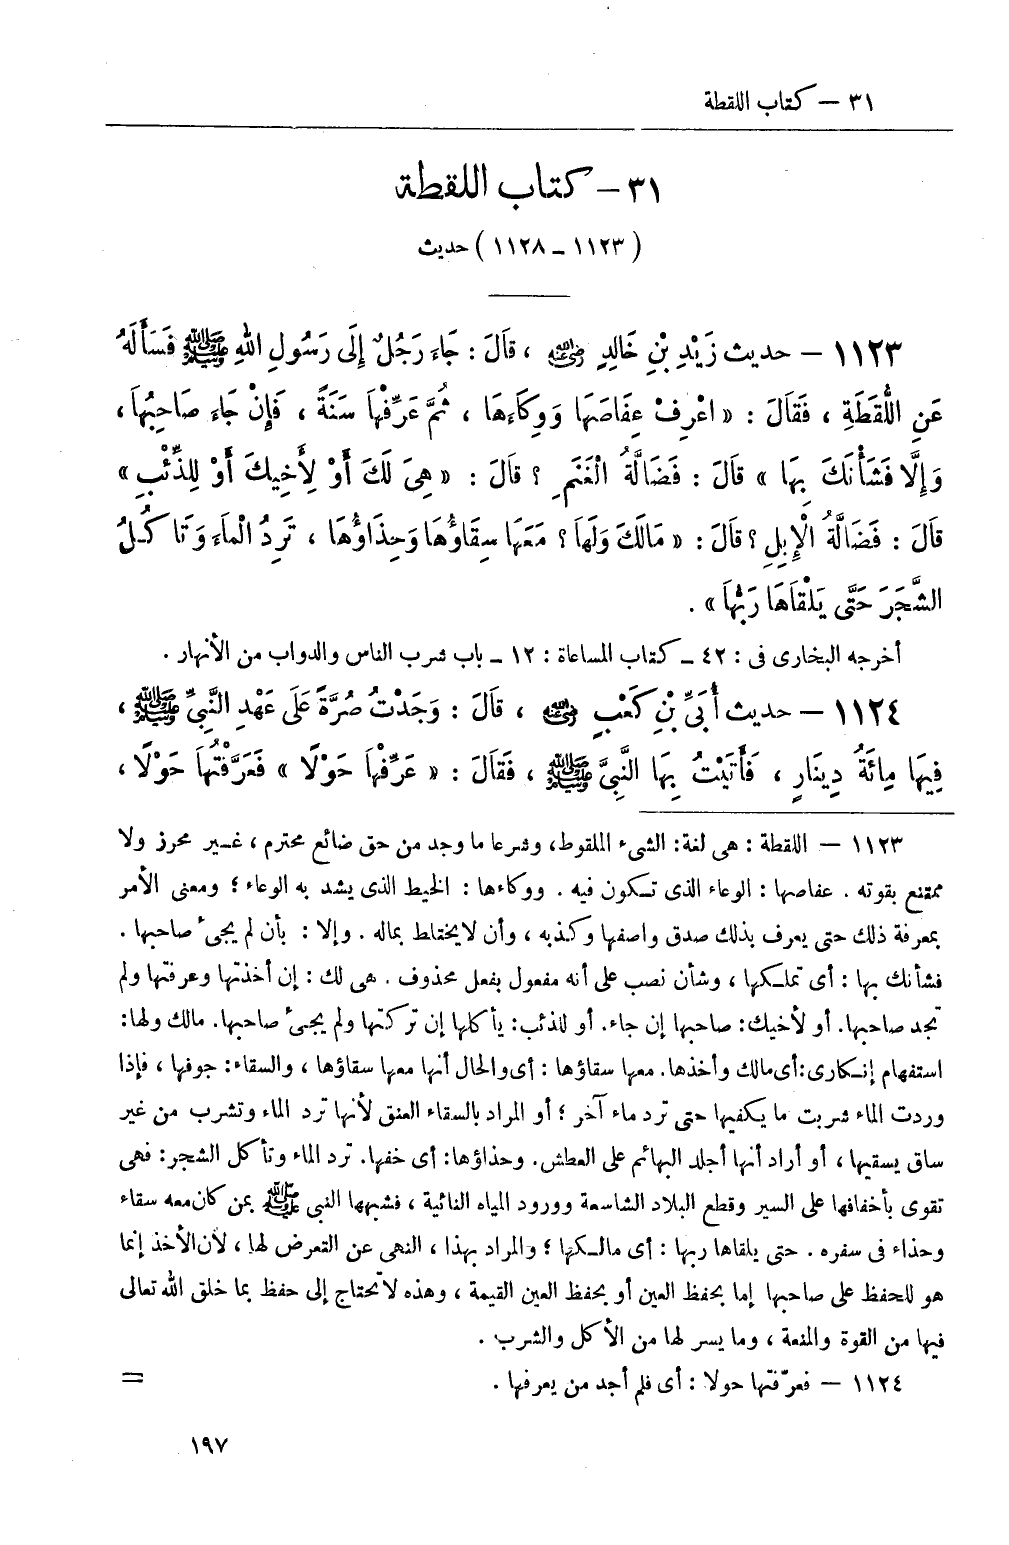 ٣١ – كتاب اللقطة
٣١ – كتاب اللقطة
( ١١٢٣ – ١١٢٨ ) حديث
١١٢٣ – حديث زَيْدِ بْنِ خَالِدٍ رضي الله عنه ، قَالَ : جَاءَ رَجُلٌ إِلَى رَسُولِ اللهِ ﷺ فَسَأَلَهُ
عَنِ اللُّقَطَةِ ، فَقَالَ : « اعْرِفْ عِفَاصَهَا وَوِكَاءَهَا ، ثُمَّ عَرِّفْهَا سَنَةً ، فَإِنْ جَاءَ صَاحِبُهَا ،
وَإِلَّا فَشَأْنَكَ بِهَا » قَالَ : فَضَالَّةُ الْغَنَمِ ؟ قَالَ : « هِيَ لَكَ أَوْ لِأَخِيكَ أَوْ لِلذِّئْبِ »
قَالَ : فَضَالَّةُ الْإِبِلِ ؟ قَالَ : « مَالَكَ وَلَهَا ؟ مَعَهَا سِقَاؤُهَا وَحِذَاؤُهَا ، تَرِدُ الْمَاءَ وَتَأكُلُ
الشَّجَرَ حَتَّى يَلْقَاهَا رَبُّهَا » .
أخرجه البخارى فى : ٤٢ – كتاب المساقاة : ١٢ – باب شرب الناس والدواب من الأنهار .
١١٢٤ – حديث أُبَىِّ بْنِ كَعْبٍ رضي الله عنه ، قَالَ : وَجَدْتُ صُرَّةً عَلَى عَهْدِ النَّبِيِّ ﷺ ،
فِيهَا مِائَةُ دِينَارٍ ، فَأَتَيْتُ بِهَا النَّبِيَّ ﷺ ، فَقَالَ : « عَرِّفْهَا حَوْلًا » فَعَرَّفْتُهَا حَوْلًا ،
١١٢٣ – اللقطة : هى لغة: الشىء الملقوط، وشرعا ما وجد من حق ضائع محترم ، غير محرز ولا
ممتنع بقوته . عفاصها : الوعاء الذى تكون فيه . ووكاءها : الخيط الذى يشد به الوعاء ؛ ومعنى الأمر
بمعرفة ذلك حتى يعرف بذلك صدق واصفها وكذبه ، وأن لا يختلط بماله . وإلا : بأن لم يجىء صاحبها .
فشأنك بها : أى تملكها ، وشأن نصب على أنه مفعول بفعل محذوف . هى لك : إن أخذتها وعرفتها ولم
تجد صاحبها. أو لأخيك: صاحبها إن جاء. أو للذئب: يأكلها إن تركتها ولم يجىء صاحبها. مالك ولها:
استفهام إنكارى: أى مالك وأخذها. معها سقاؤها : أى والحال أنها معها سقاؤها ، والسقاء: جوفها ، فإذا
وردت الماء شربت ما يكفيها حتى ترد ماء آخر ؛ أو المراد بالسقاء العنق لأنها ترد الماء وتشرب من غير
ساق يسقيها ، أو أراد أنها أجلد البهائم على العطش. وحذاؤها: أى خفها. ترد الماء وتأكل الشجر: فهى
تقوى بأخفافها على السير وقطع البلاد الشاسعة وورود المياه النائية ، فشبهها النبى ﷺ بمن كان معه سقاء
وحذاء فى سفره . حتى يلقاها ربها : أى مالكها ؛ والمراد بهذا ، النهى عن التعرض لها ، لأن الأخذ إنما
هو للحفظ على صاحبها إما بحفظ العين أو بحفظ العين القيمة ، وهذه لا تحتاج إلى حفظ بما خلق الله تعالى
فيها من القوة والمنعة ، وما يسر لها من الأكل والشرب .
١١٢٤ – فعرّفتها حولا : أى فلم أجد من يعرفها . =
١٩٧